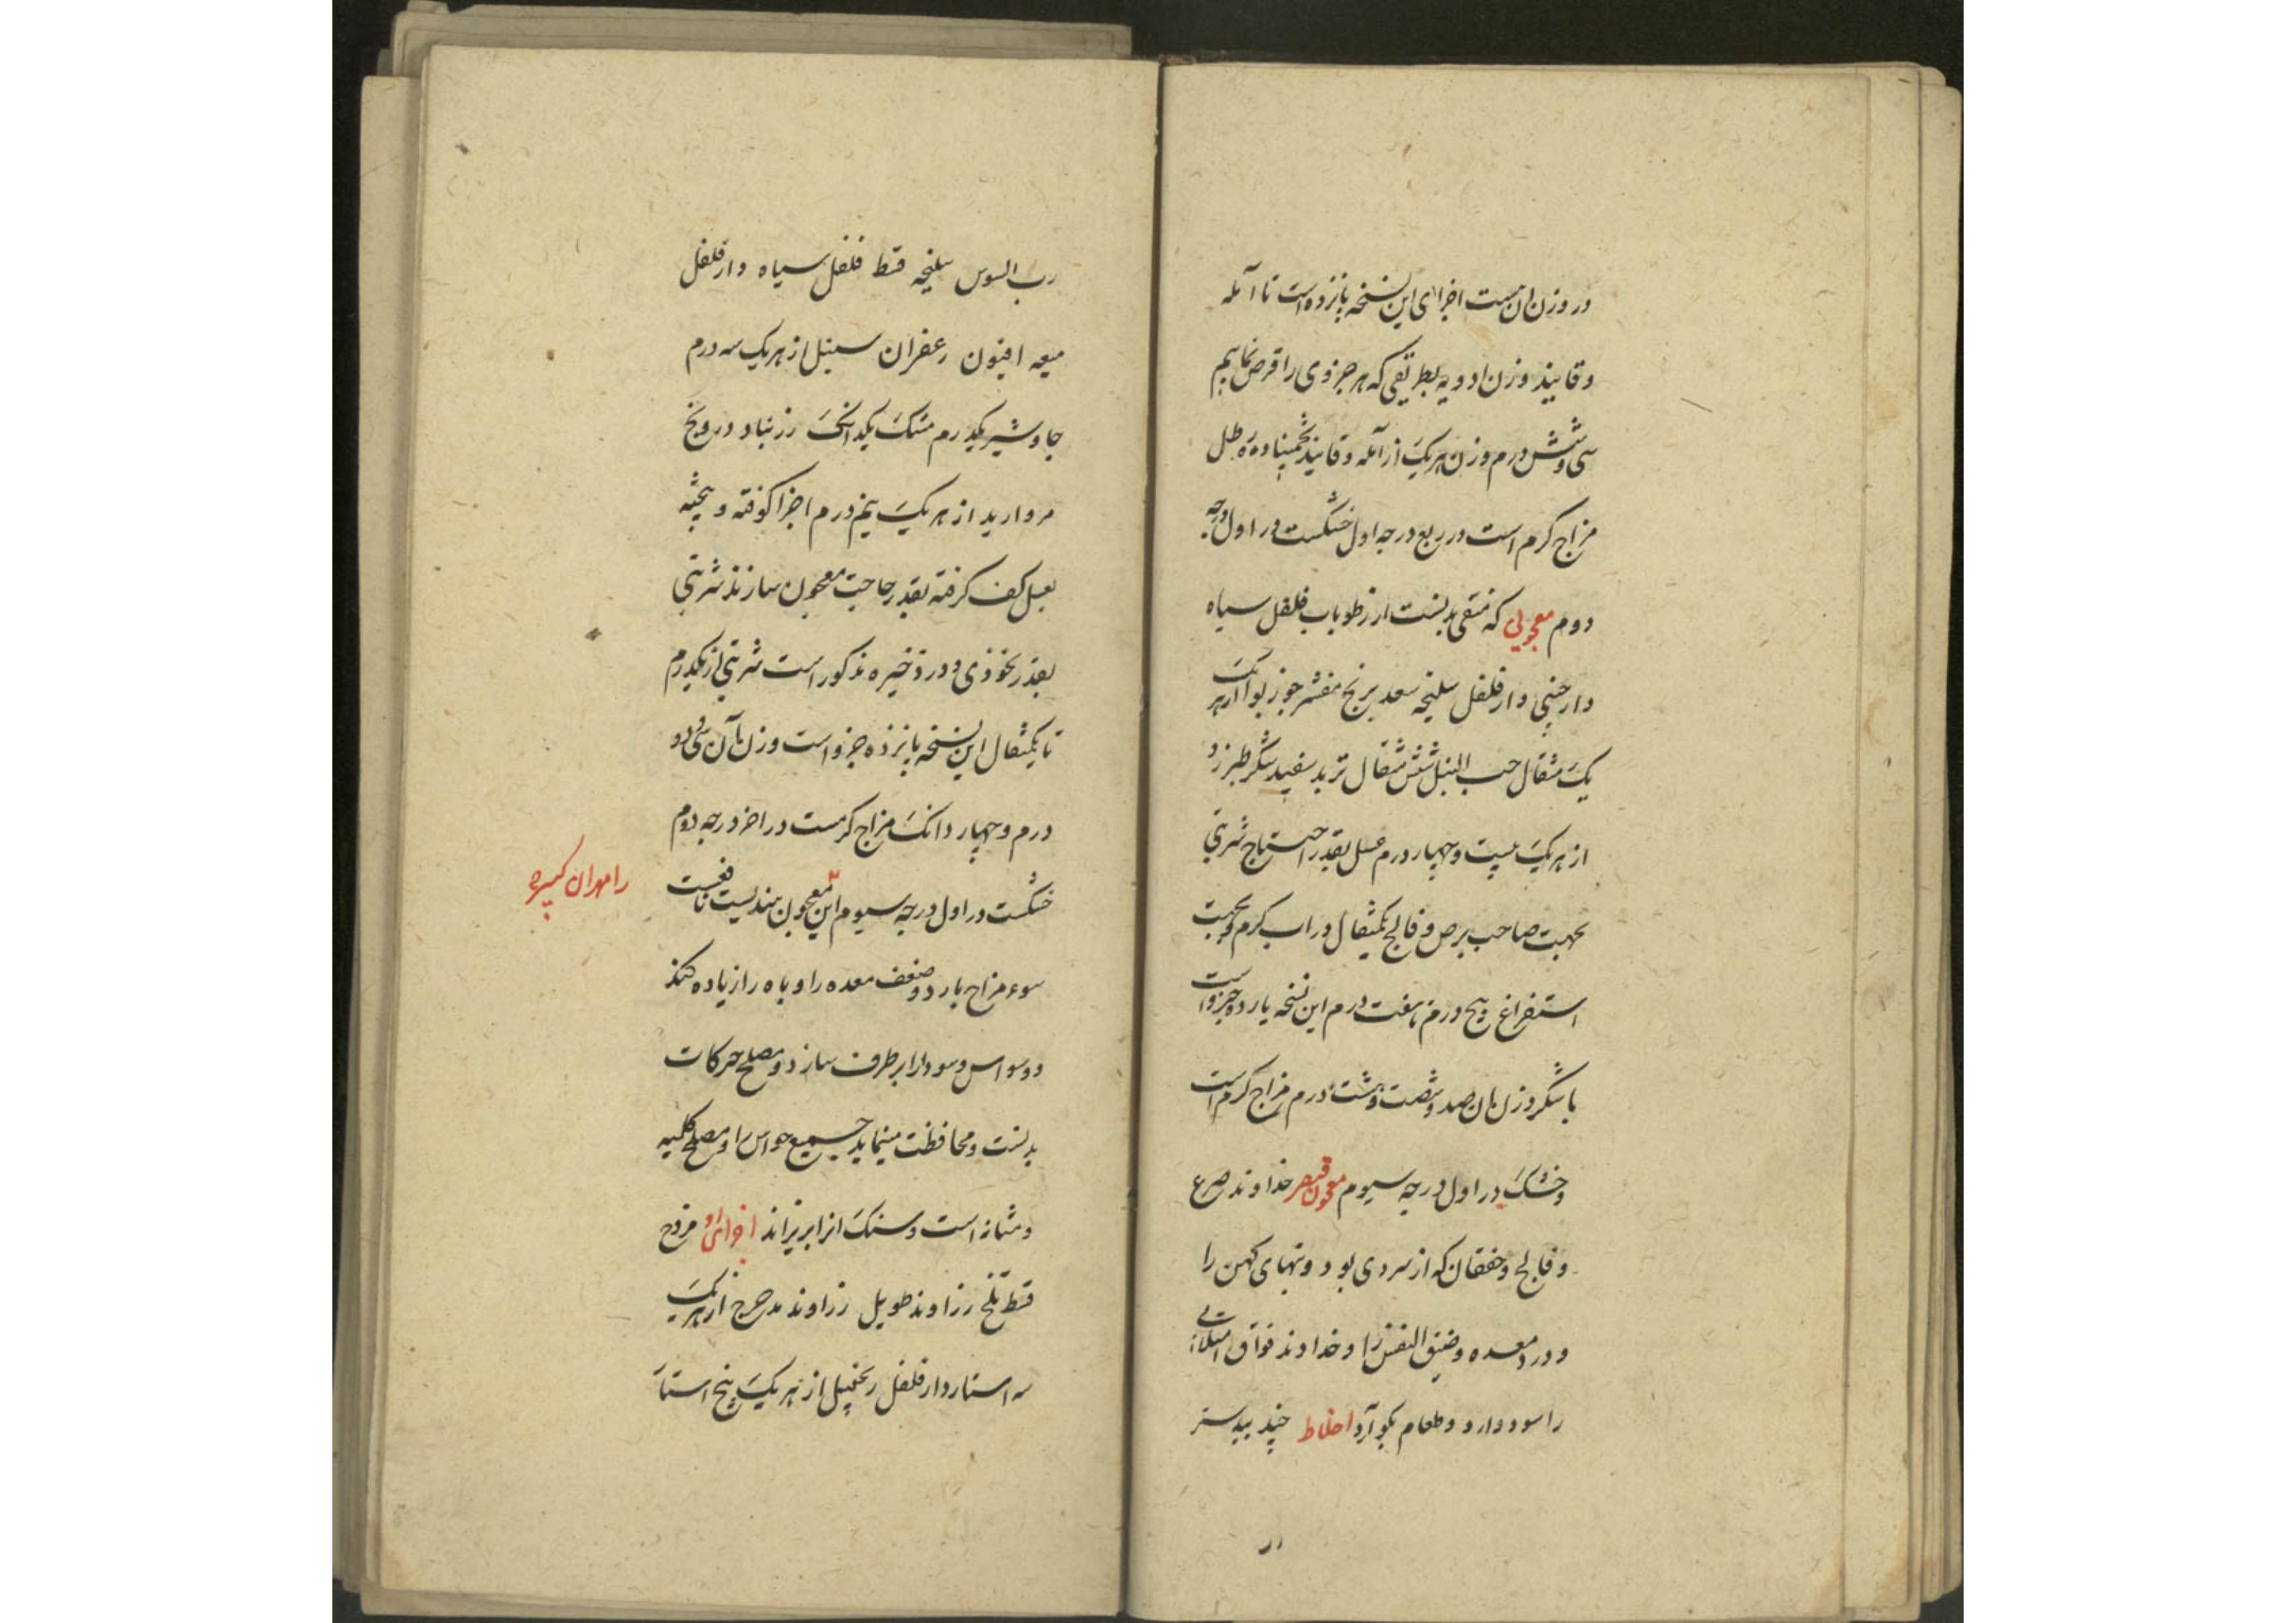 در وزن ان هست اجزای این نسخه پانزده است تا آمله
و قانیذ وزن ادویه بطریقی که هر جزوی را قرض نماییم
سی و شش درم وزن هر یک از آمله و قانیذ تخمینا و ده رطل
مزاج کرم است در ربع درجه اول خشکست در اول درجه
دوم معجونی که منقی بدنست از رطوبات فلفل سیاه
دارچینی دارفلفل سلیخه سعد برنج مقشر جوز بوا از هر
یک مثقال حب النیل شش مثقال تربد سفید شکر طبرزد
از هر یک بیست و چهار درم عسل بقدر احتیاج شربتی
بجهت صاحب برص و فالج یکمثقال در اب کرم و بجهت
استفراغ پنج درم تا هفت درم این نسخه یازده جزو است
با شکر وزن ان صد و شصت و هشت درم مزاج کرم است
و خشک در اول درجه سیوم معجون قیصر خداوند صرع
و فالج و خفقان که از سردی بود و تبهای کهن را
و درد معده و ضیق النفس را و خداوند فواق امتلائی
را سود دارد و طعام بکوارد اخلاط جند بیدستر
رب السوس سلیخه قسط فلفل سیاه دارفلفل
میعه افیون زعفران سنبل از هر یک سه درم
جاوشیر یکدرم مشک یکدانک زرنباد درونج
مروارید از هر یک نیم درم اجزا کوفته و بیخته
بعسل کف کرفته بقدر حاجت معجون سازند شربتی
بقدر نخودی و در ذخیره مذکور است شربتی از یکدرم
تا یکمثقال این نسخه پانزده جزو است وزن آن سی و دو
درم و چهار دانک مزاج کرمست در اخر درجه دوم
خشکست در اول درجه سیوم این معجون هندیست نافعست
رامهران کبیر
سوء مزاج بارد و ضعف معده را و باه را زیاده کند
و وسواس و سودا را برطرف سازد و مصلح حرکات
بدنست و محافظت مینماید جمیع حواس را و مصلح کلیه
و مثانه است و سنک انرا بریزاند اجزای او
قسط تلخ زراوند طویل زراوند مدحرج از هر یک
سه استار دارفلفل زنجبیل از هر یک پنج استار